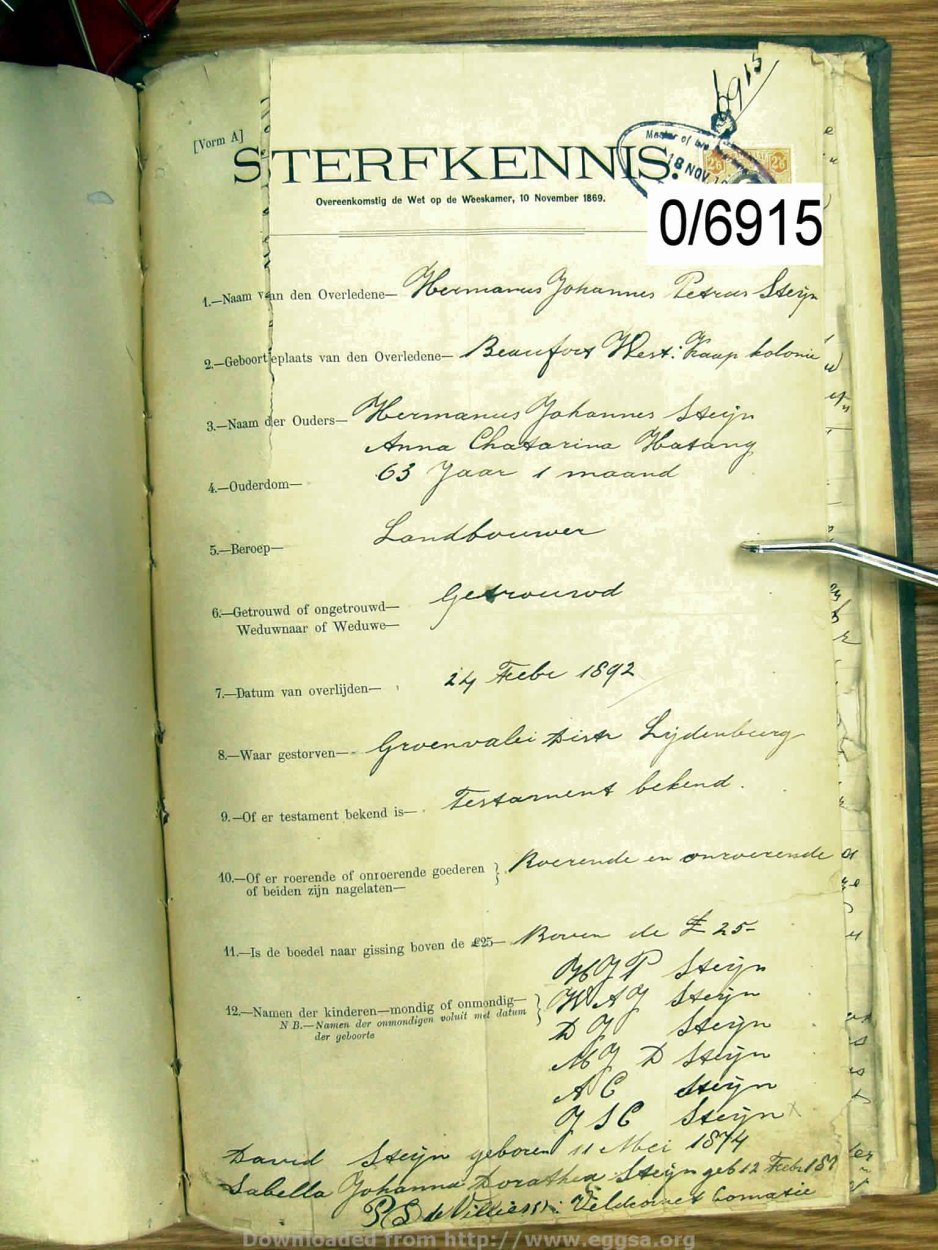 6915
[Vorm A]
STERFKENNIS.
Master of the
18 NOV.
2/6 2/6
Overeenkomstig de Wet op de Weeskamer, 10 November 1869.
0/6915
1.—Naam van den Overledene— Hermanus Johannes Petrus Steijn
2.—Geboorteplaats van den Overledene— Beaufort West: Kaap kolonie
3.—Naam der Ouders— Hermanus Johannes Steijn
Anna Chatarina Hatang
4.—Ouderdom— 63 Jaar 1 maand
5.—Beroep— Landbouwer
6.—Getrouwd of ongetrouwd— Getrouwd
Weduwnaar of Weduwe—
7.—Datum van overlijden— 24 Feebr 1892
8.—Waar gestorven— Groenvalei Distr Lijdenburg
9.—Of er testament bekend is— Testament bekend.
10.—Of er roerende of onroerende goederen } Roerende en onroerende
of beiden zijn nagelaten—
11.—Is de boedel naar gissing boven de £25— Boven de £ 25-
H J P Steijn
12.—Namen der kinderen—mondig of onmondig— } W A J Steijn
N B.—Namen der onmondigen voluit met datum
der geboorte
D J Steijn
M J D Steijn
A C Steijn
J S C Steijn
David Steijn geboren 11 Mei 1874
Sabella Johanna Dorathea Steijn geb 12 Feebr
P S de Villiers: Veldcornet Comatie
Downloaded from http://www.eggsa.org